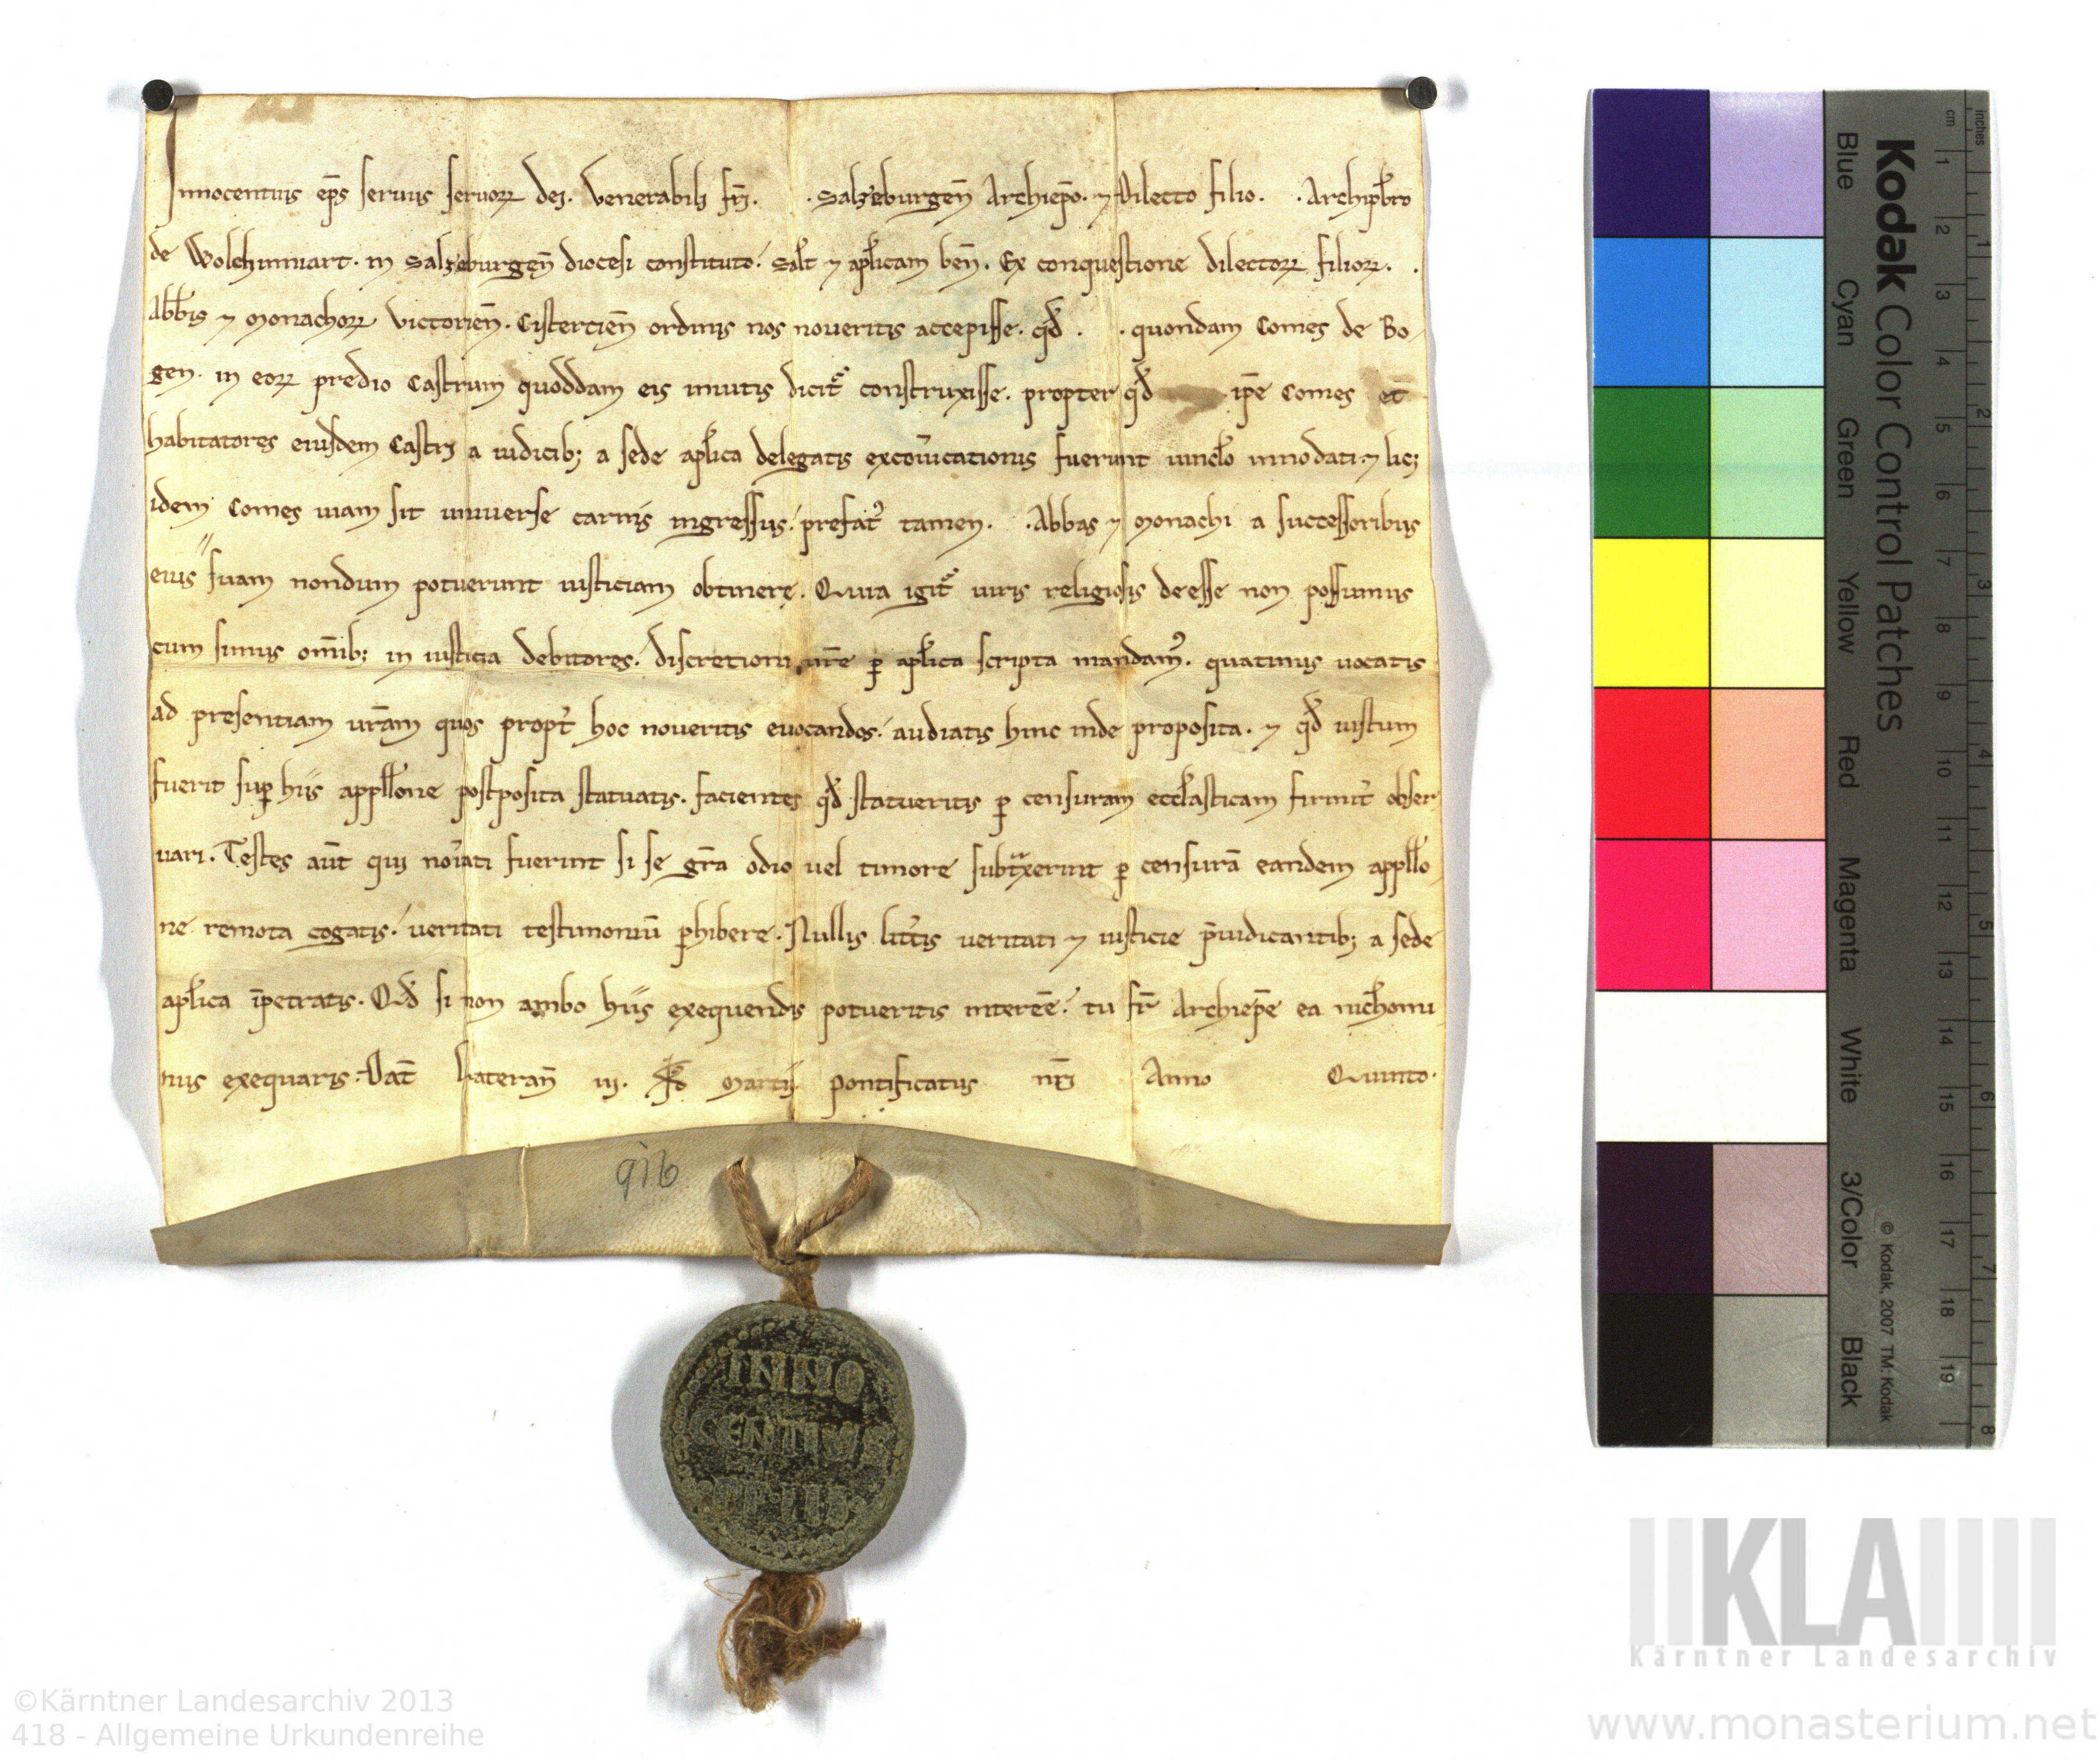 Innocentius ep̄s seruus seruoꝝ dei. Venerabili fr̄i. . Salzeburgen̄ Archiep̄o. ⁊ Dilecto filio. . Archipb̄ro
de Wolchimuart. in Salzeburgen̄ diocesi constituto. Sal̄t ⁊ ap̄licam ben̄. Ex conquestione dilectoꝝ filioꝝ. .
Abb̄is ⁊ Monachoꝝ Victorien̄. Cistercien̄ ordinis nos noueritis accepisse. qd̄ . . quondam Comes de Bo-
gen. in eoꝝ predio Castrum quoddam eis inuitis dicit᷒ construxisse. propter qd̄ . ip̄e Comes et
habitatores eiusdem Castri a iudicib; a sede ap̄lica delegatis excōicationis fuerint uinc̄lo innodati. ⁊ lic;
idem Comes uiam sit uniuerse carnis ingressus. prefat᷒ tamen. . Abbas ⁊ Monachi a successoribus
eius suam nondum potuerunt iusticiam obtinere. Quia igit᷒ uiris religiosis deesse non possumus
cum simus om̄ib; in iusticia debitores. discretioni ur̄e ꝑ ap̄lica scripta mandam᷒. quatinus uocatis
ad presentiam ur̄am quos propt̄ hoc noueritis euocandos. audiatis hinc inde proposita. ⁊ qd̄ iustum
fuerit suꝑ hiis appll̄one postposita statuatis. facientes qd̄ statueritis ꝑ censuram eccl̄asticam firmit̄ obser
uari. Testes aūt qui noīati fuerint si se gr̄a odio uel timore subtͣxerint ꝑ censurā eandem appll̄o
ne remota cogatis. ueritati testimoniū ꝑhibere. Nullis litt̄is ueritati ⁊ iusticie p̄iudicantib; a sede
ap̄lica īpetratis. Qd̄ si non ambo hiis exequendis potueritis interēē. tu fr̄ Archiep̄e ea nichomi
nus exequaris. Dat̄ Lateran̄ iij. kd̄ Martij pontificatus nr̄i Anno Quinto.
916
INNO
CENTIVS
PP·III·
Kodak Color Control Patches
Blue Cyan Green Yellow Red Magenta White 3/Color Black
© Kodak, 2007 TM: Kodak
cm 1 2 3 4 5 6 7 8 9 10 11 12 13 14 15 16 17 18 19
inches 1 2 3 4 5 6 7 8
KLA
Kärntner Landesarchiv
©Kärntner Landesarchiv 2013
418 - Allgemeine Urkundenreihe
www.monasterium.net